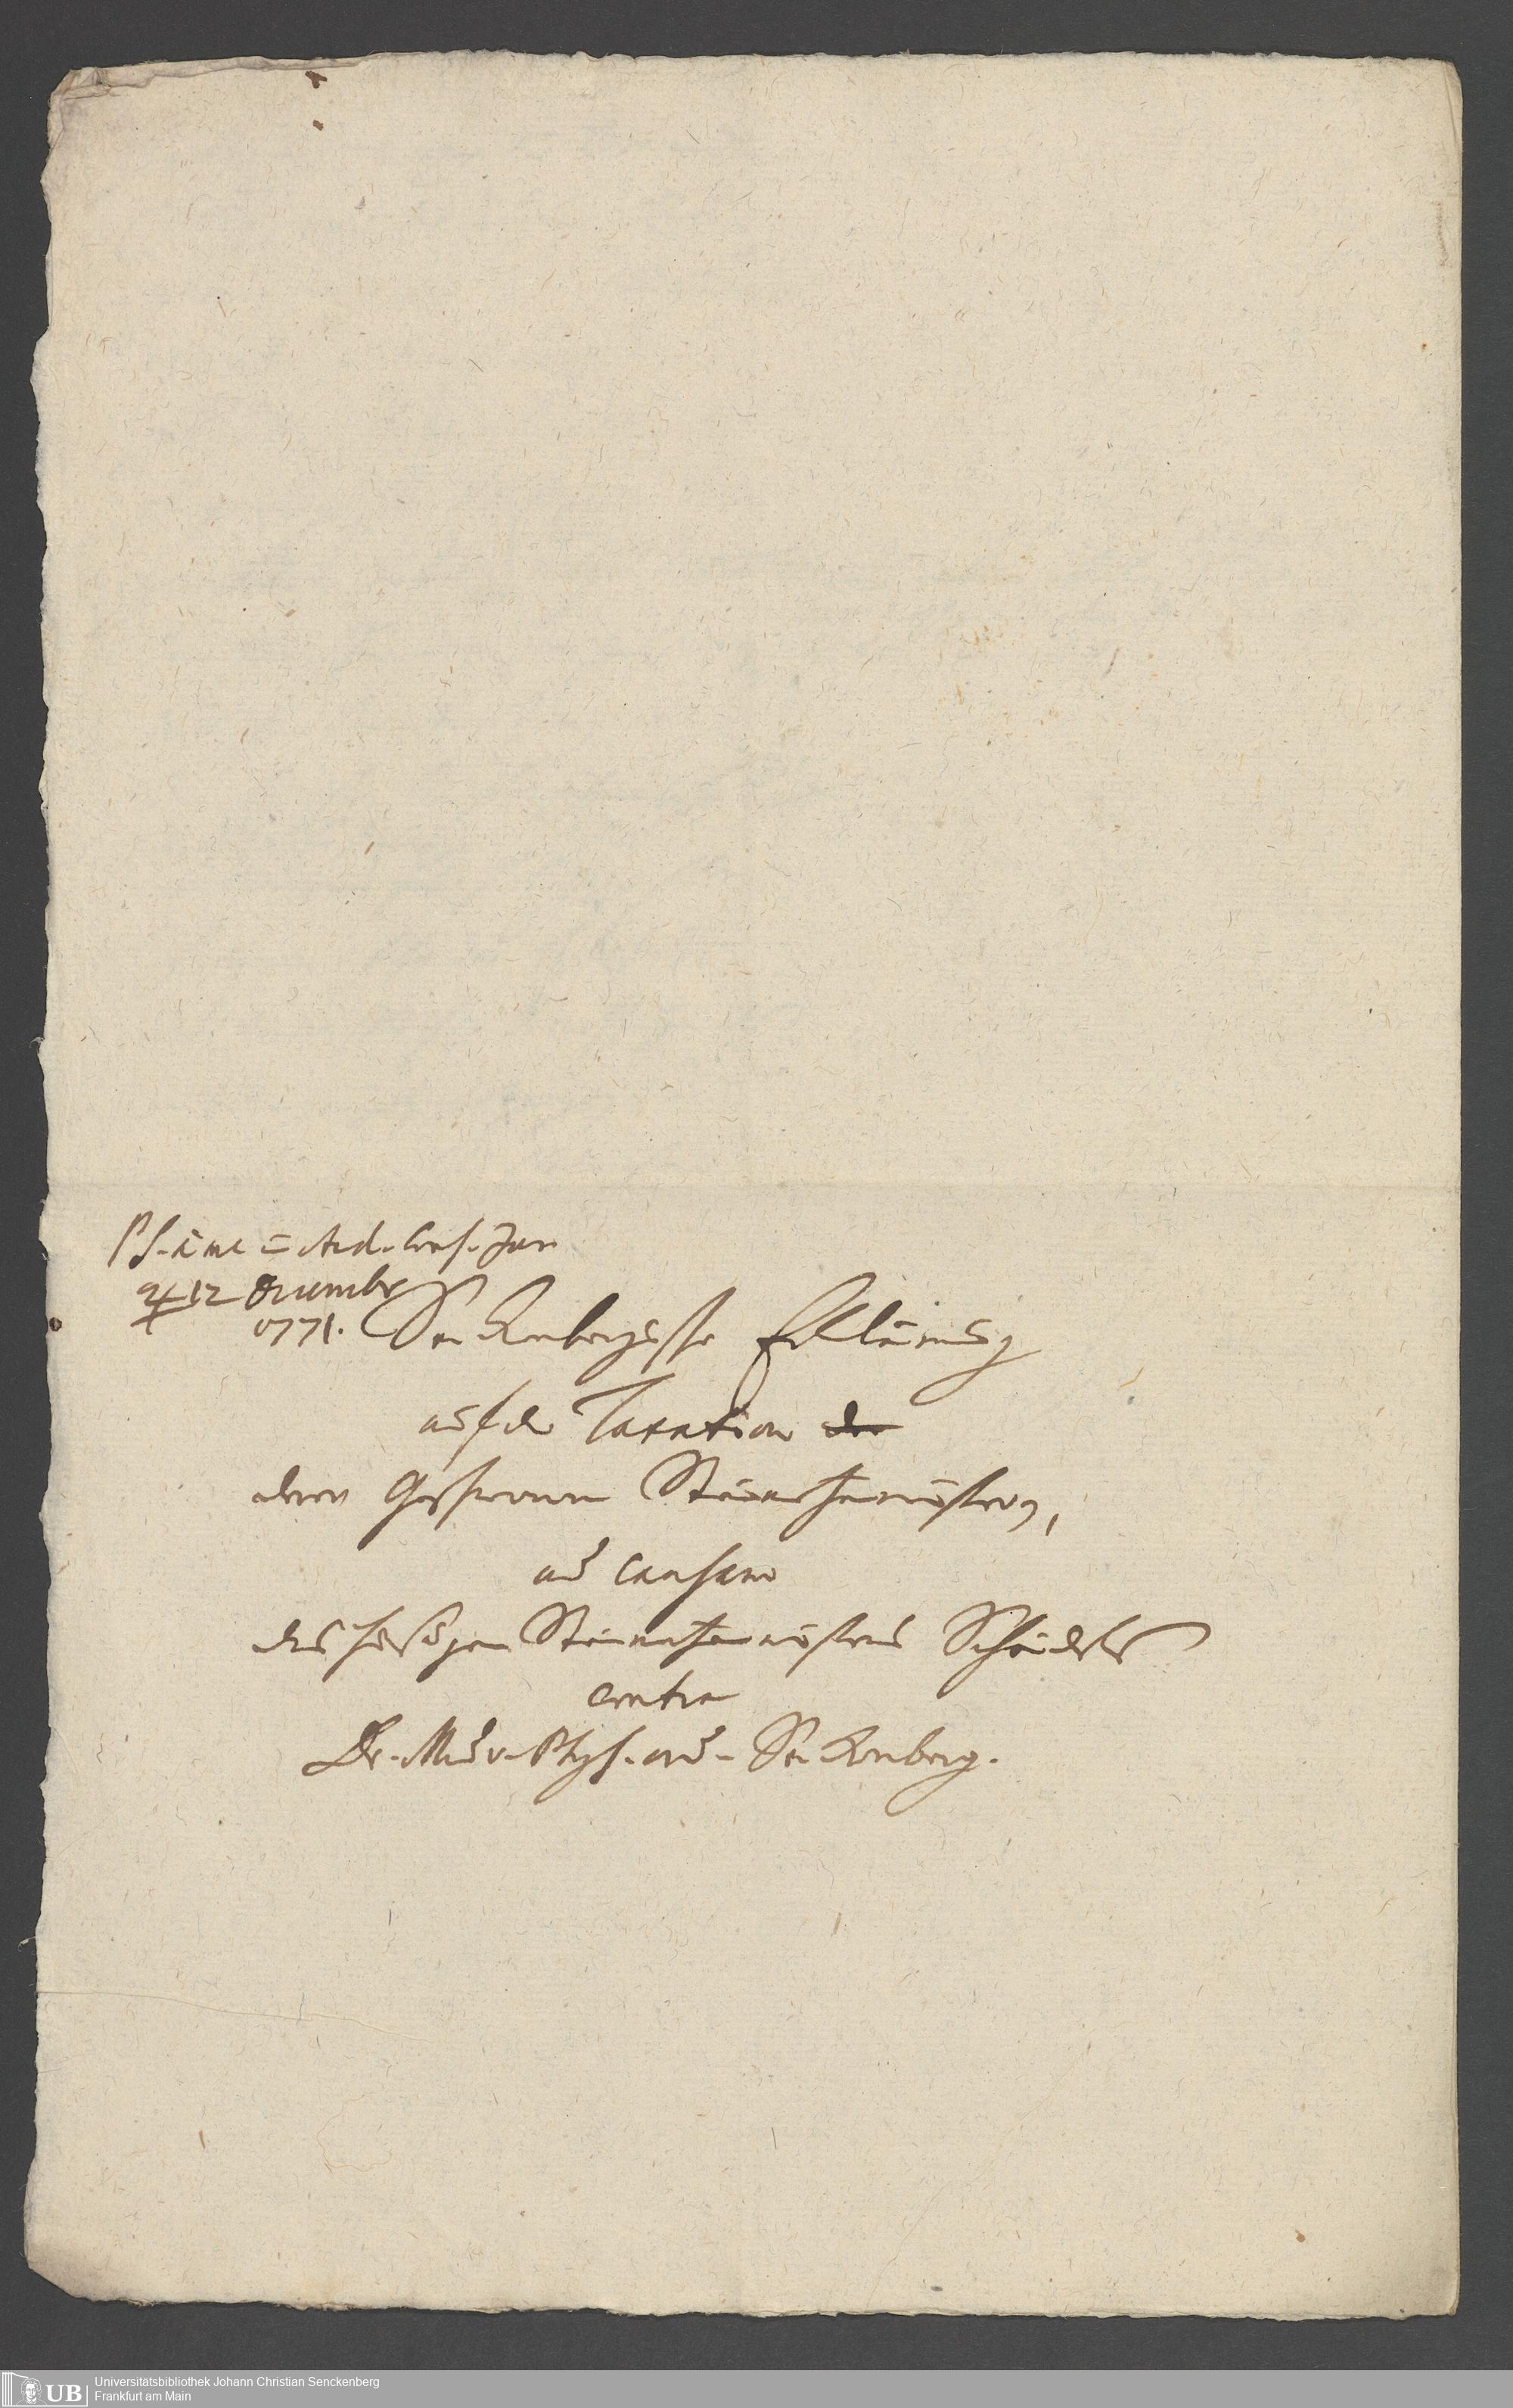 ♃ 12 Decembr
1771. Senckenbergische Erklärung
auf die Taxation der
deren Geschwornen Steinmetzenmeistern,
ad causam
des hiesigen Steinmetzenmeisters Scheidels
contra
Dr. Med. Phys. ord. Senckenberg.
UB
Universitätsbibliothek Johann Christian Senckenberg
Frankfurt am Main